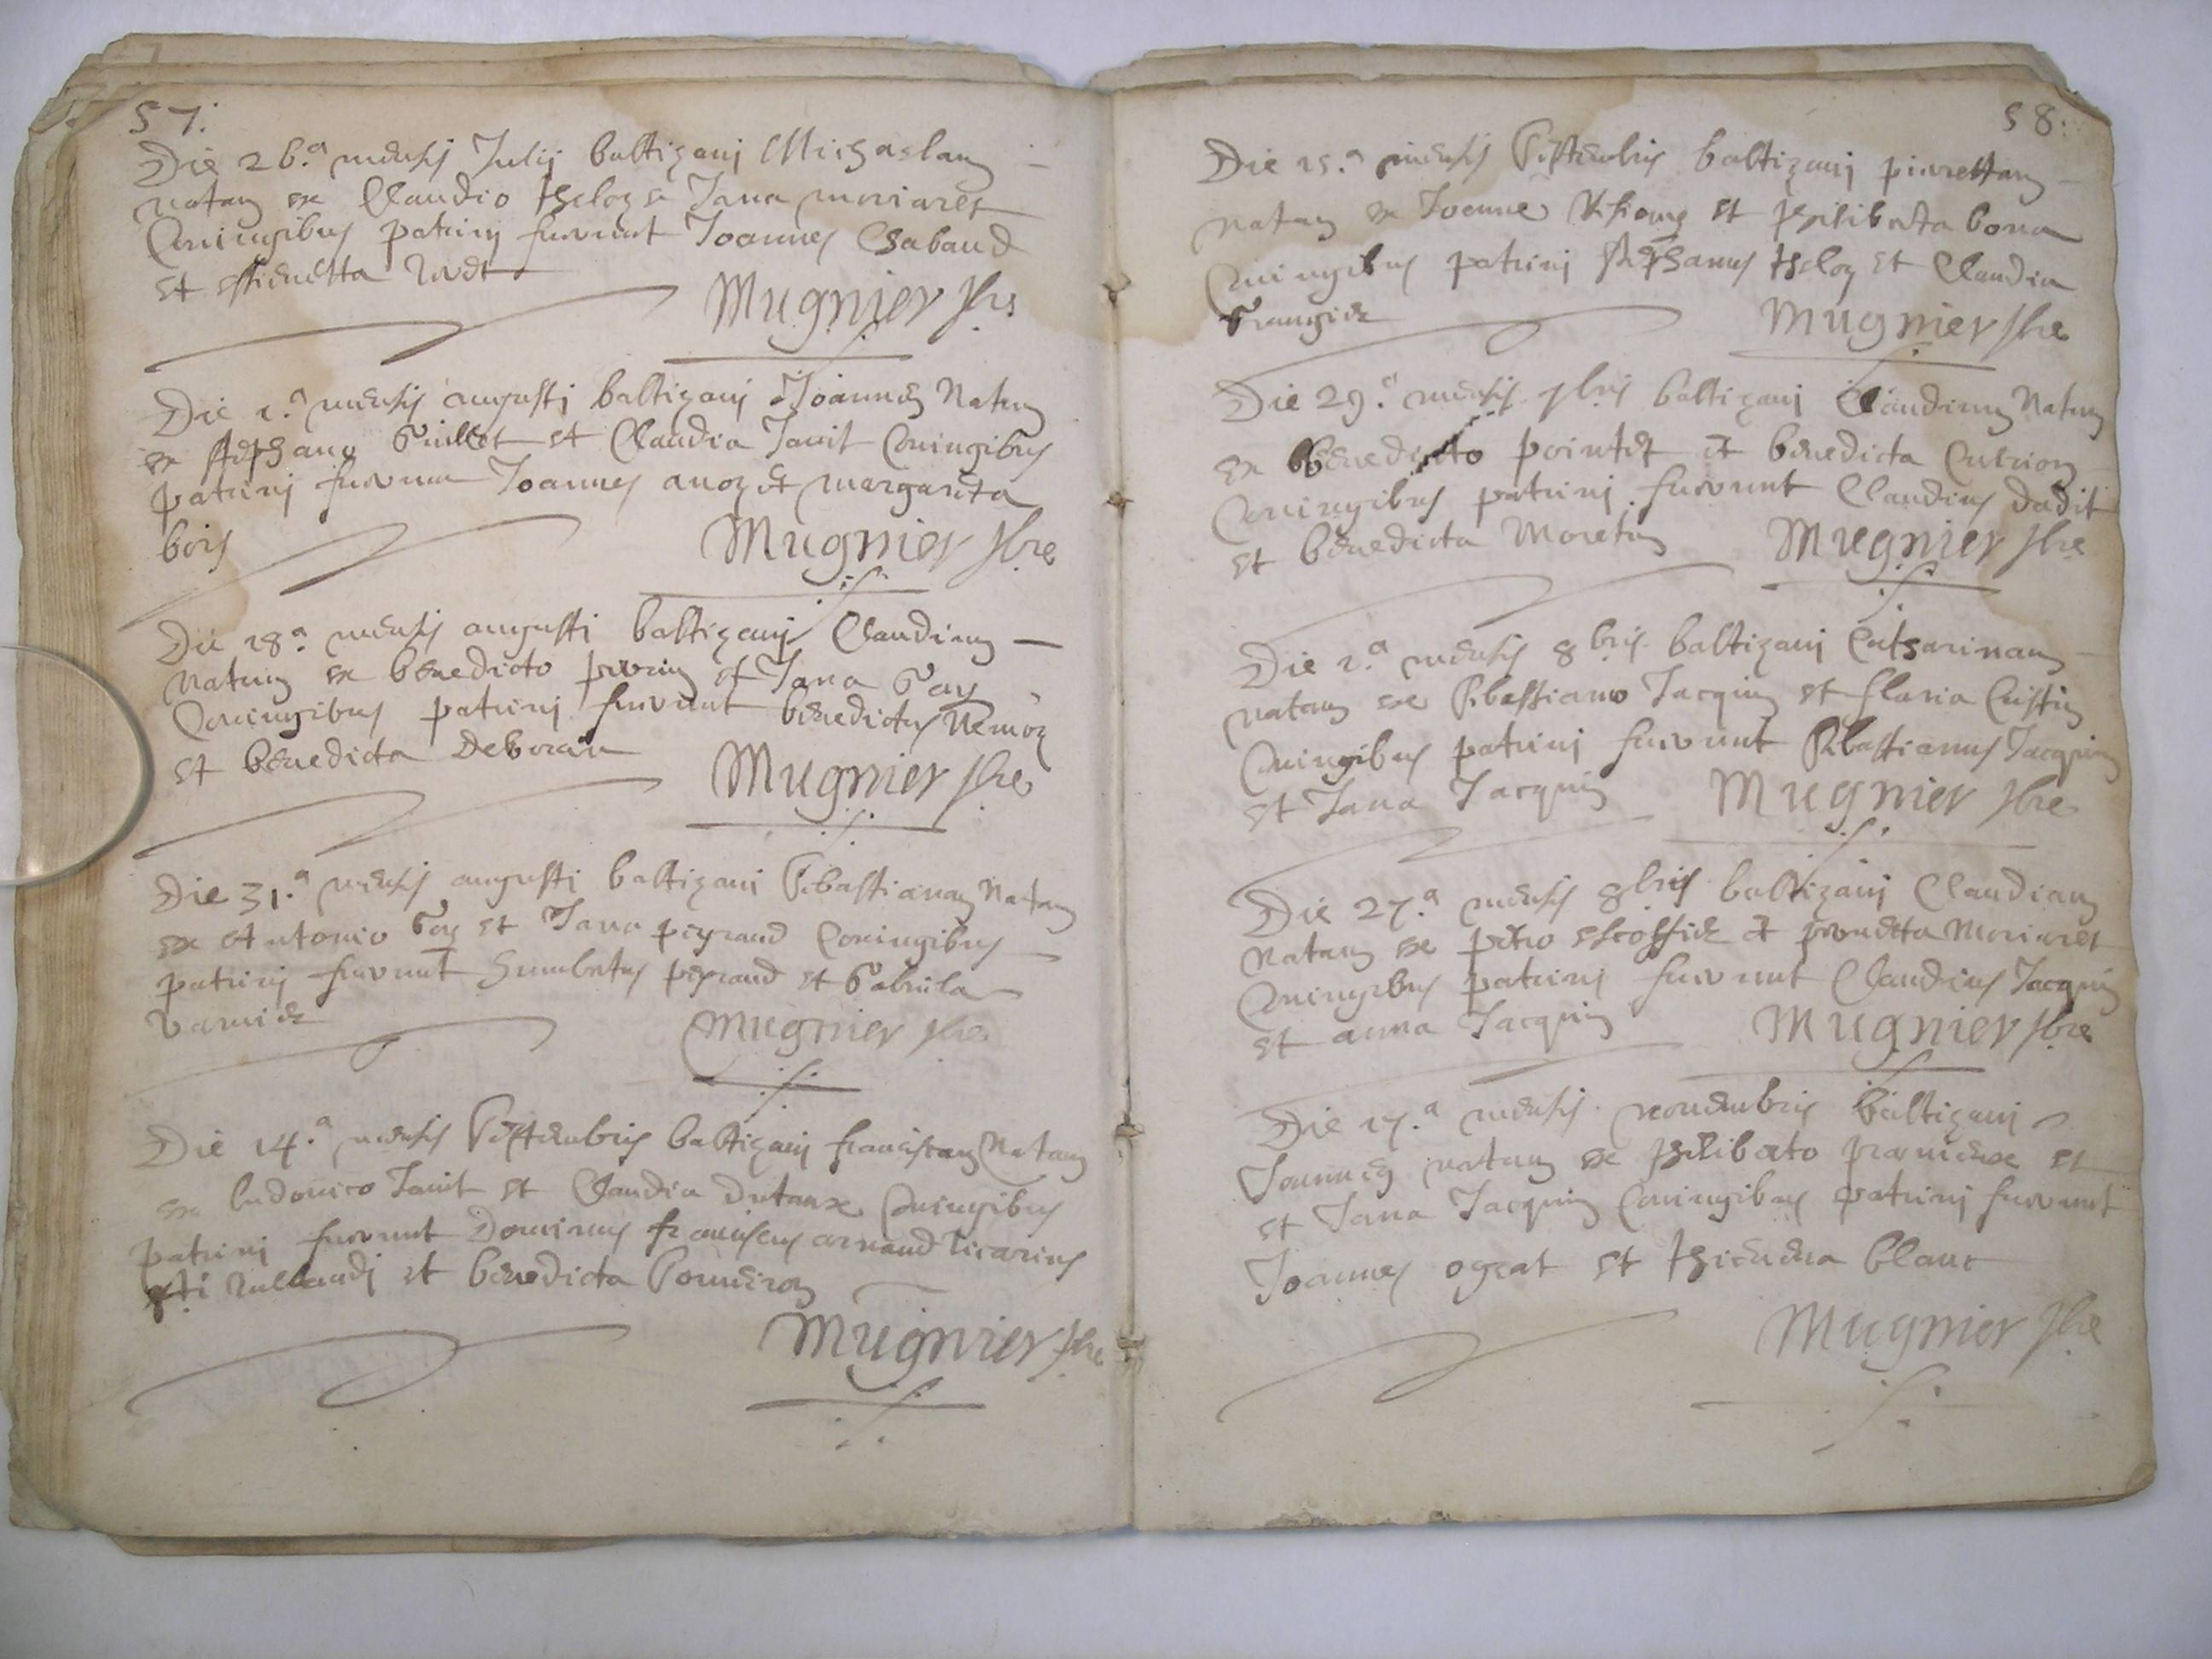 57.
Die 26.a mensis Julij baltizavj Michaelam
natam ex Claudio theloz et Jana moriaret
Coniugibus patrinj fuerunt Joannes Chabaud
et
Mugnier pbre
Die 1.a mensis augustj baltizavj Joannem Natum
ex stephano Guillet et Claudia Janit Coniugibus
patrinj fuerunt Joannes anoz et margarita
bois
Mugnier pbre
Die 18.a mensis augustj baltizavj Claudium
natum ex benedicto perrin et Jana Gay
Coniugibus patrinj fuerunt benedictus Nemoz
et benedicta
Mugnier pbre
Die 31.a mensis augustj baltizavj Sebastianam Natam
ex Antonio Gay et Jana peyraud Coniugibus
patrinj fuerunt humbertus peyraud et Gabriela
varnier
Mugnier pbre
Die 14.a mensis Septembris baltizavj franciscam Natam
ex ludovico Janit et Claudia Coniugibus
patrinj fuerunt Dominus franciscus arnaud vicarius
stj et benedicta
Mugnier pbre
58.
Die 15.a mensis Septembris baltizavj pierrettam
natam ex Joanne et philiberta bona
Coniugibus patrinj stephanus theloz et Claudia
Grangier
Mugnier pbre
Die 29.a mensis 7bris baltizavj Claudium Natum
ex Benedicto pointet et benedicta
Coniugibus patrinj fuerunt Claudius Dadit
et benedicta Moretin
Mugnier pbre
Die 2.a mensis 8bris baltizavj Catharinam
natam ex Sebastiano Jacquin et Claria
Coniugibus patrinj fuerunt Sebastianus Jacquin
et Jana Jacquin
Mugnier pbre
Die 27.a mensis 8bris baltizavj Claudiam
natam ex petro escoffier et Moriaret
Coniugibus patrinj fuerunt Claudius Jacquin
et anna Jacquin
Mugnier pbre
Die 17.a mensis novembris baltizavj
Joannem natum ex philiberto et
et Jana Jacquin Coniugibus patrinj fuerunt
Joannes ogeat et blanc
Mugnier pbre